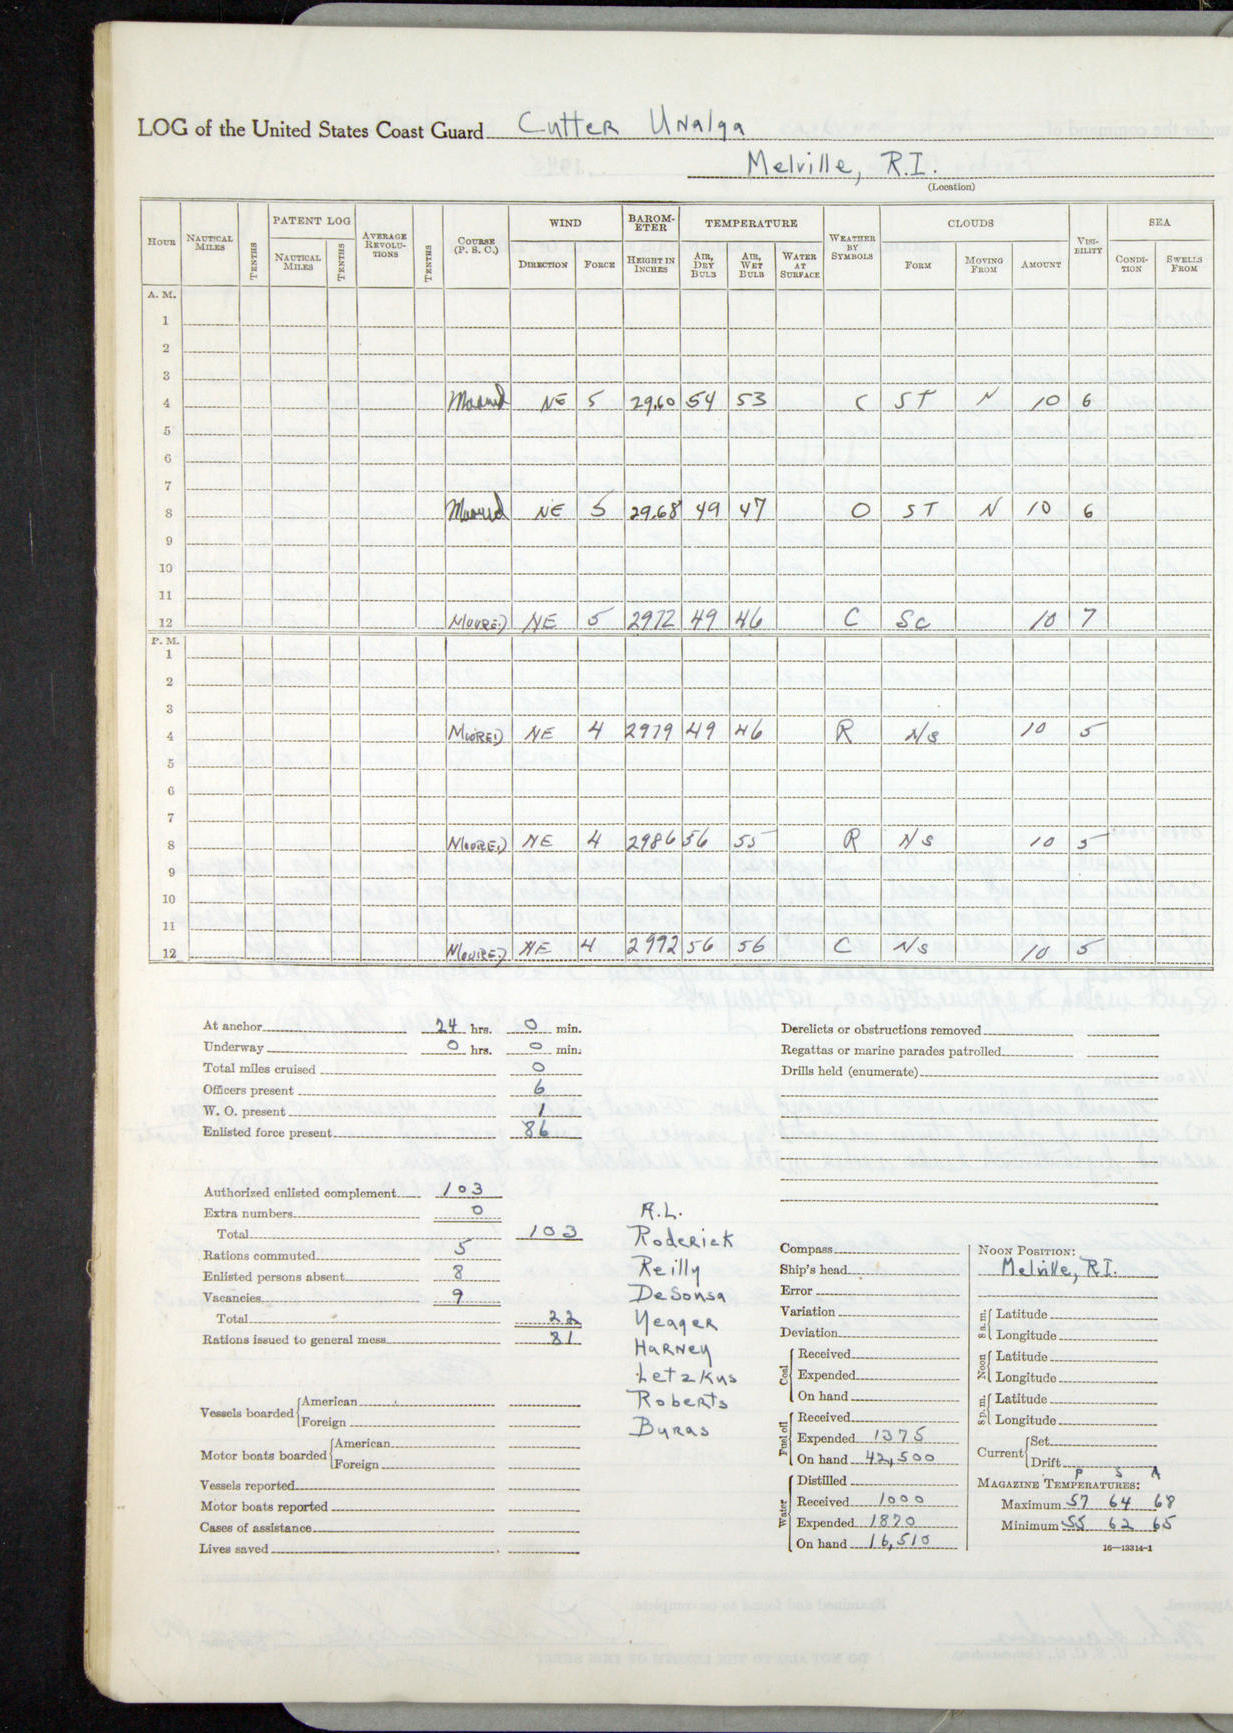 LOG of the United States Coast Guard Cutter Unalga
Melville, R.I.
(Location)
HOUR NAUTICAL MILES TENTHS PATENT LOG NAUTICAL MILES TENTHS AVERAGE REVOLUTIONS TENTHS COURSE (P. S. C.) WIND DIRECTION FORCE BAROMETER HEIGHT IN INCHES TEMPERATURE AIR, DRY BULB AIR, WET BULB WATER AT SURFACE WEATHER BY SYMBOLS CLOUDS FORM MOVING FROM AMOUNT VISIBILITY SEA CONDITION SWELLS FROM
A. M.
1
2
3
4 Moored NE 5 29.60 54 53 C ST N 10 6
5
6
7
8 Moored NE 5 29.68 49 47 O ST N 10 6
9
10
11
12 MOORED NE 5 2972 49 46 C Sc 10 7
P. M.
1
2
3
4 MOORED NE 4 2979 49 46 R Ns 10 5
5
6
7
8 MOORED NE 4 2986 56 55 R Ns 10 5
9
10
11
12 MOORED NE 4 2992 56 56 C Ns 10 5
At anchor 24 hrs. 0 min.
Underway 0 hrs. 0 min.
Total miles cruised 0
Officers present 6
W. O. present 1
Enlisted force present 86
Authorized enlisted complement 103
Extra numbers 0
Total 103
Rations commuted 5
Enlisted persons absent 8
Vacancies 9
Total 22
Rations issued to general mess 81
Vessels boarded American
Foreign
Motor boats boarded American
Foreign
Vessels reported
Motor boats reported
Cases of assistance
Lives saved
A.L.
Roderick
Reilly
DeSousa
Yeager
Harney
Letzkus
Roberts
Byras
Derelicts or obstructions removed
Regattas or marine parades patrolled
Drills held (enumerate)
Compass
Ship's head
Error
Variation
Deviation
Coal Received
Expended
On hand
Fuel oil Received
Expended 1375
On hand 42,500
Water Distilled
Received 1000
Expended 1870
On hand 16,510
NOON POSITION:
Melville, R.I.
8 a.m. Latitude
Longitude
Noon Latitude
Longitude
8 p.m. Latitude
Longitude
Current Set
Drift
P S A
MAGAZINE TEMPERATURES:
Maximum 57 64 68
Minimum 55 62 65
16—13314-1